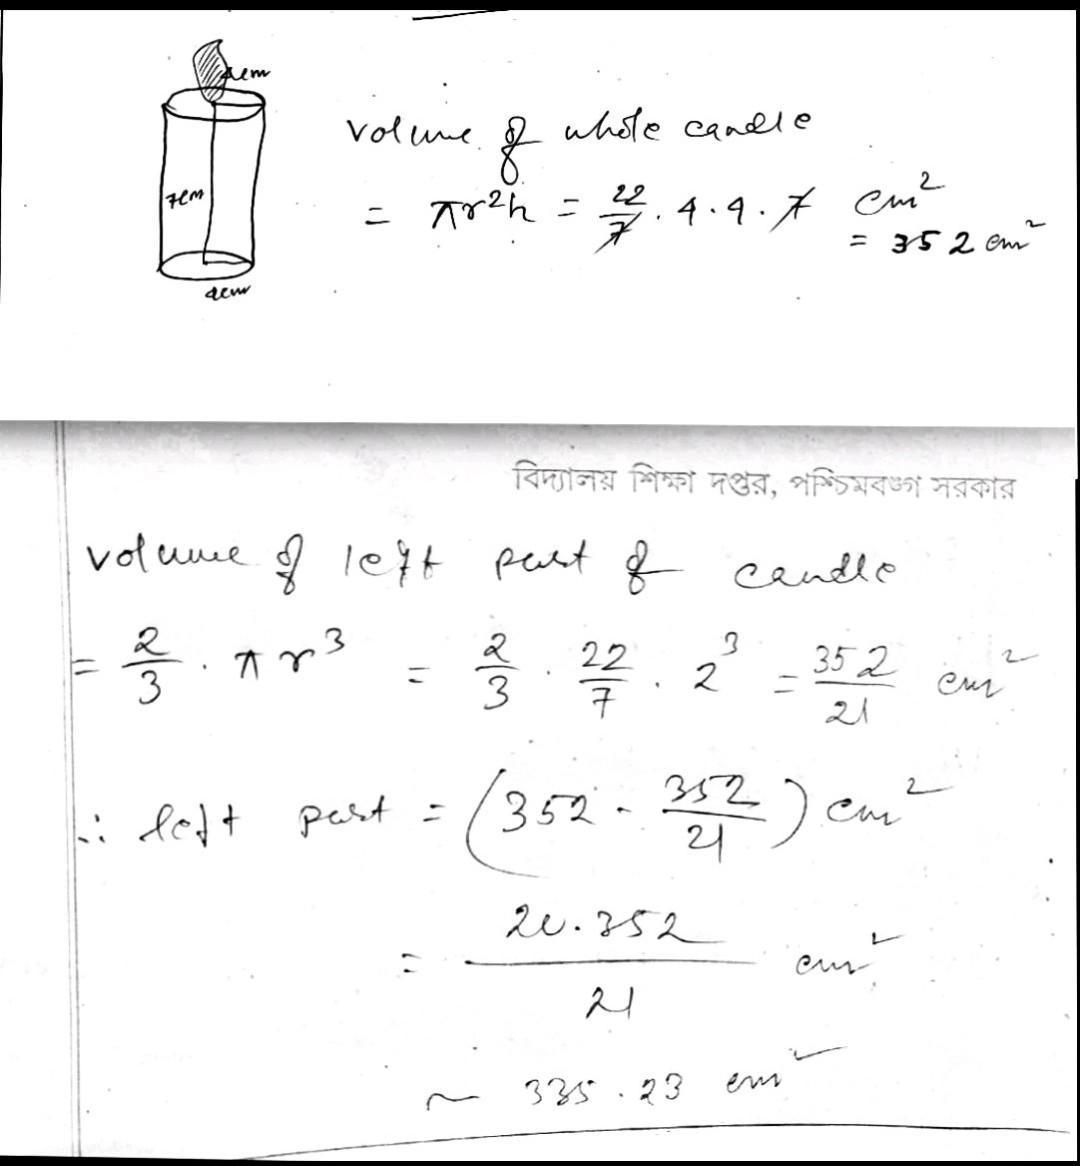 4cm
volume of whole candle
7cm
= πr²h = 22/7 . 4 . 4 . 7 cm²
= 352 cm²
4cm
বিদ্যালয় শিক্ষা দপ্তর, পশ্চিমবঙ্গ সরকার
volume of left part of candle
= 2/3 . πr³ = 2/3 . 22/7 . 2³ = 352/21 cm²
∴ left part = (352 - 352/21) cm²
= 20.352/21 cm²
~ 335.23 cm²